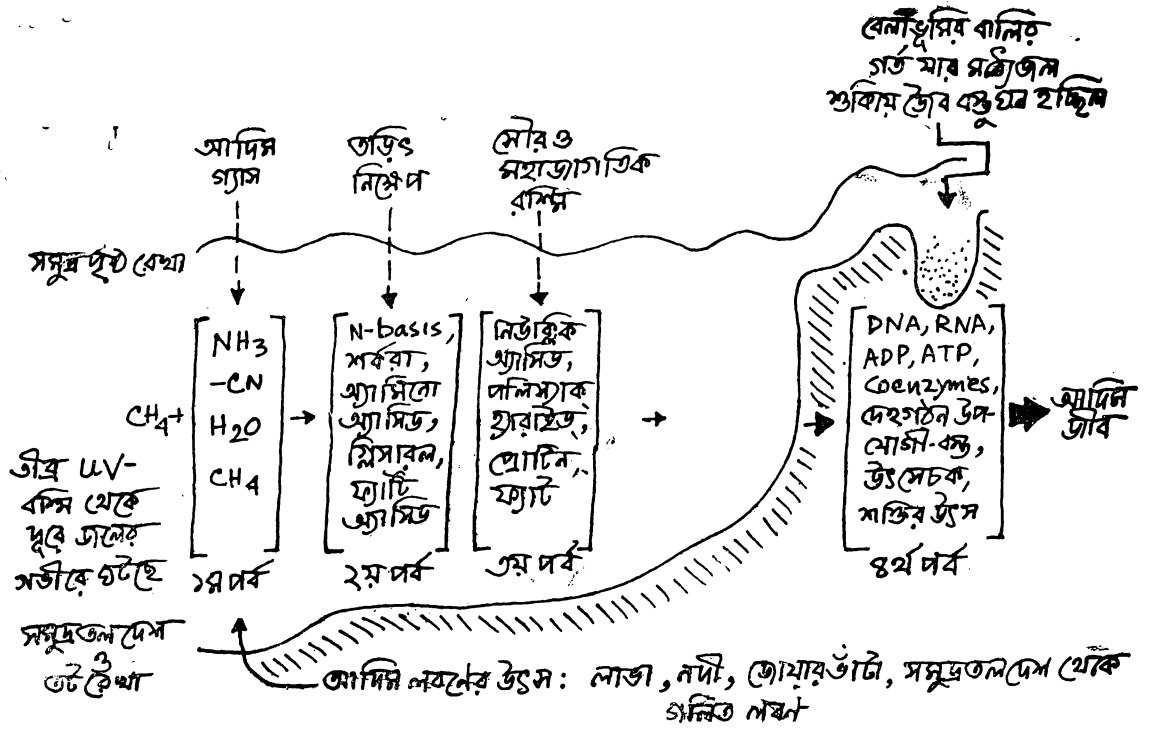 বেলাভূমির বালির
গর্ত যার মধ্যে জল
শুকিয়ে জৈব বস্তু ঘন হচ্ছিল
আদিম
গ্যাস
তড়িৎ
নিক্ষেপ
সৌর ও
মহাজাগতিক
রশ্মি
সমুদ্র পৃষ্ঠ রেখা
CH4+
NH3
-CN
H2O
CH4
১ম পর্ব
N-basis,
শর্করা,
অ্যামিনো
অ্যাসিড,
গ্লিসারল,
ফ্যাটি
অ্যাসিড
২য় পর্ব
নিউক্লিক
অ্যাসিড,
পলিস্যাক্
হ্যারাইড,
প্রোটিন,
ফ্যাট
৩য় পর্ব
DNA, RNA,
ADP, ATP,
Coenzymes,
দেহগঠন উপ-
যোগী-বস্তু,
উৎসেচক,
শক্তির উৎস
৪র্থ পর্ব
আদিম
জীব
তীব্র UV-
রশ্মি থেকে
দূরে জলের
গভীরে ঘটছে
সমুদ্রতলদেশ
ও
তট রেখা
আদিম লবনের উৎস: লাভা, নদী, জোয়ারভাঁটা, সমুদ্রতলদেশ থেকে
গলিত লবণ